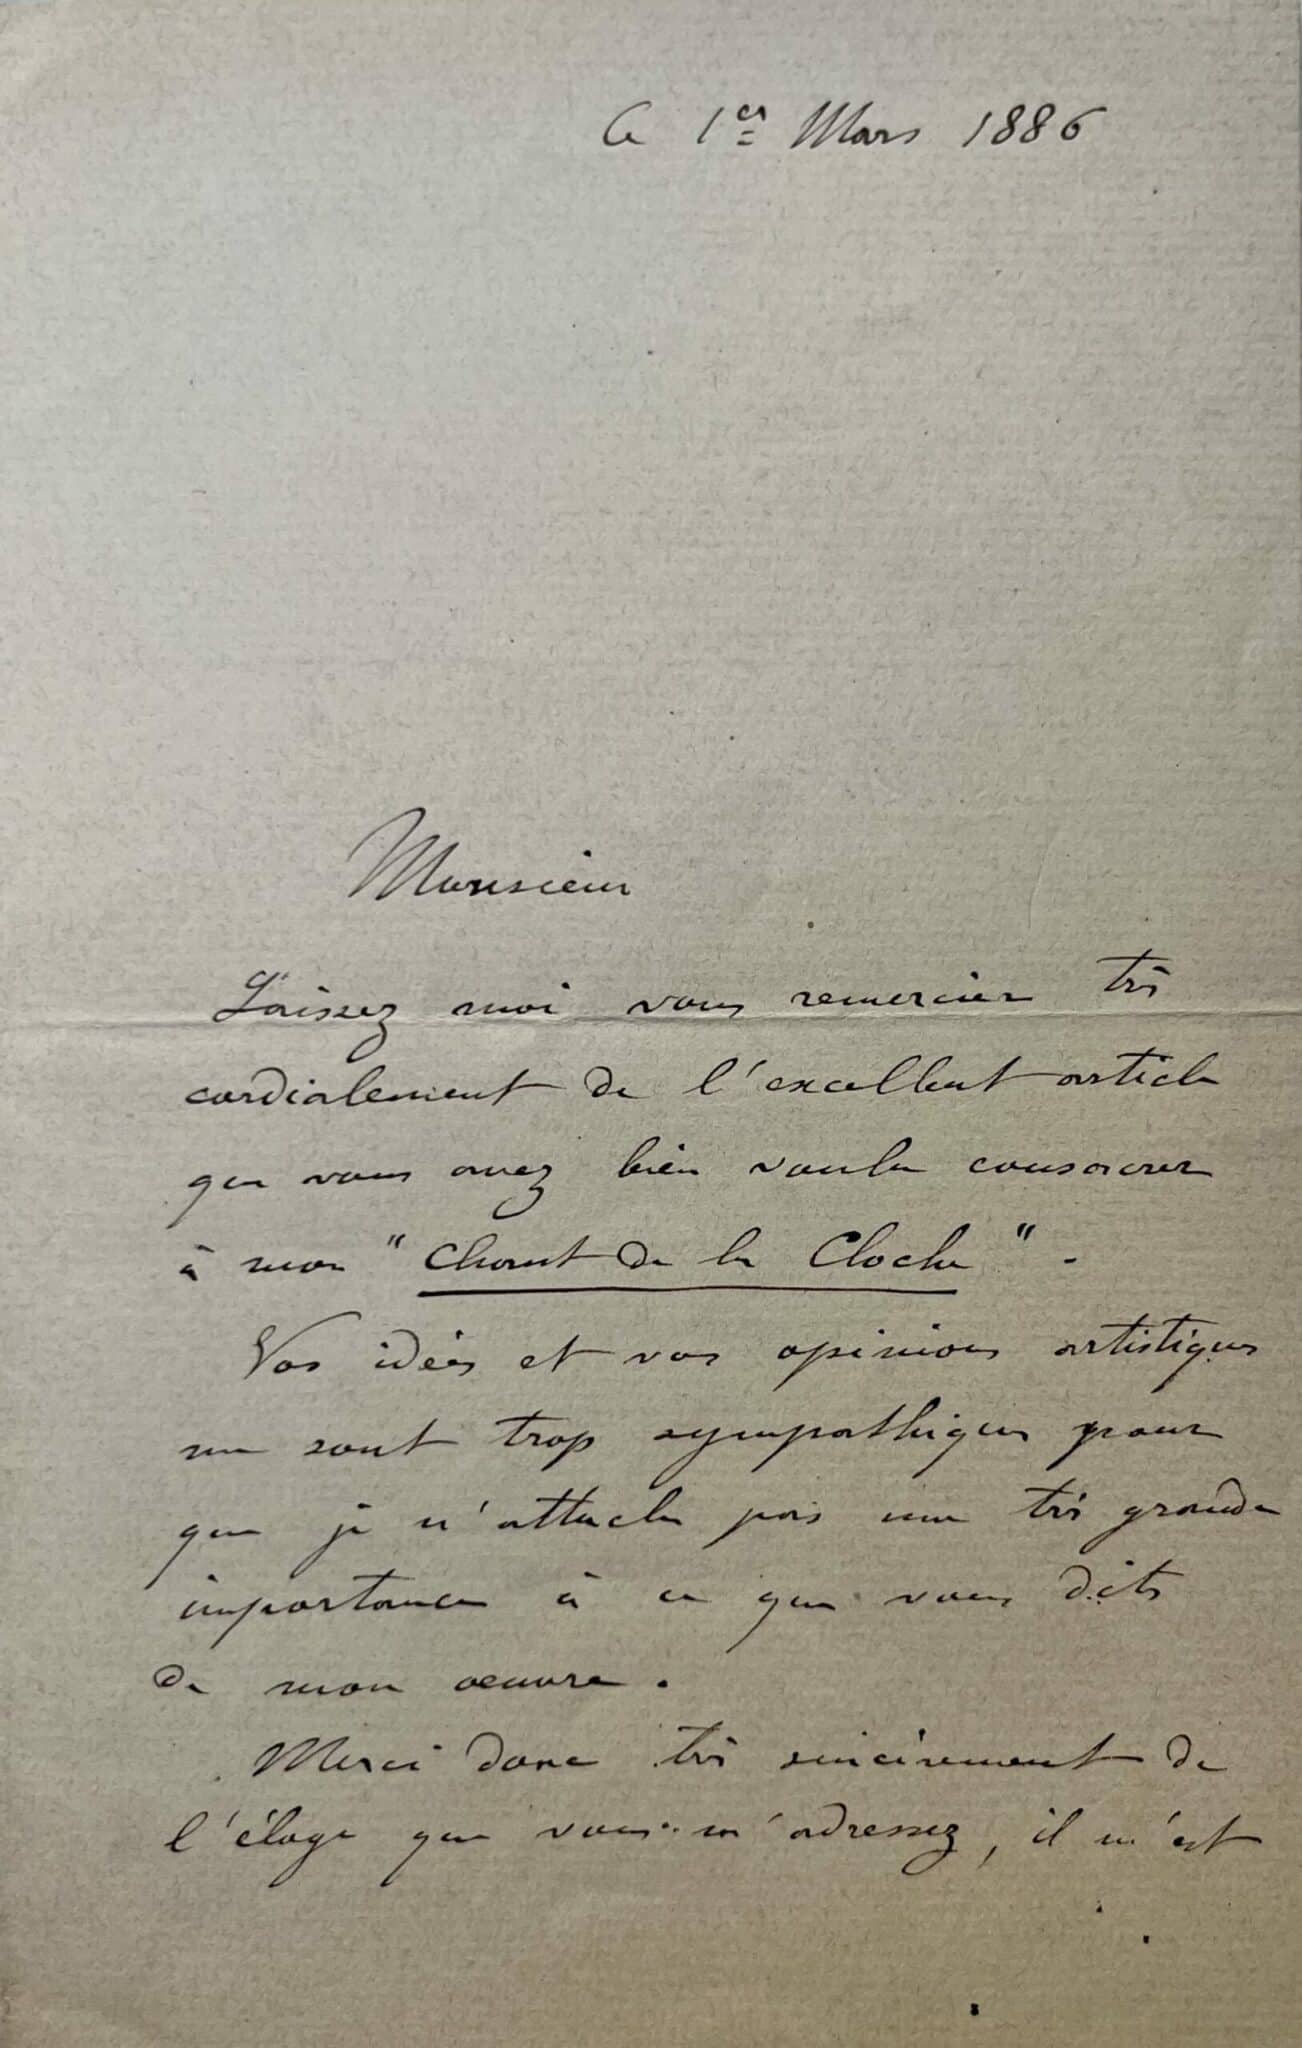 Ce 1er Mars 1886
Monsieur
Laissez moi vous remercier très
cordialement de l'excellent article
que vous avez bien voulu consacrer
à mon "Chant de la Cloche".
Vos idées et vos opinions artistiques
me sont trop sympathiques pour
que je n'attache pas une très grande
importance à ce que vous dites
de mon œuvre.
Merci donc très sincèrement de
l'éloge que vous m'adressez, il m'est